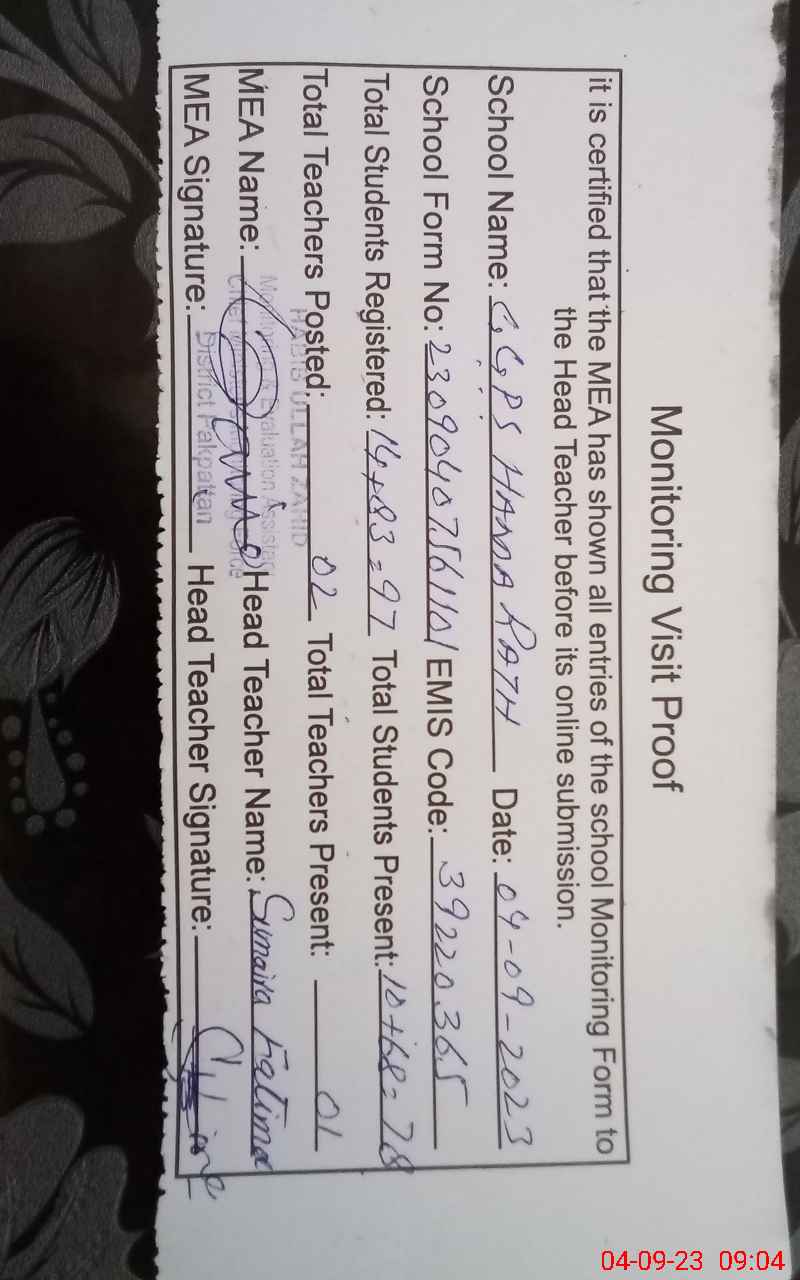 Monitoring Visit Proof
it is certified that the MEA has shown all entries of the school Monitoring Form to
the Head Teacher before its online submission.
School Name: G.G.P.S HANDA RATH Date: 04-09-2023
School Form No: 23090407561101 EMIS Code: 39220365
Total Students Registered: 14+83=97 Total Students Present: 10+68=78
Total Teachers Posted: 02 Total Teachers Present: 01
HABIB ULLAH ZAHID
Monitoring & Evaluation Assistant
District Pakpattan
MEA Name: Head Teacher Name: Sumaira Fatima
MEA Signature: Head Teacher Signature:
04-09-23 09:04